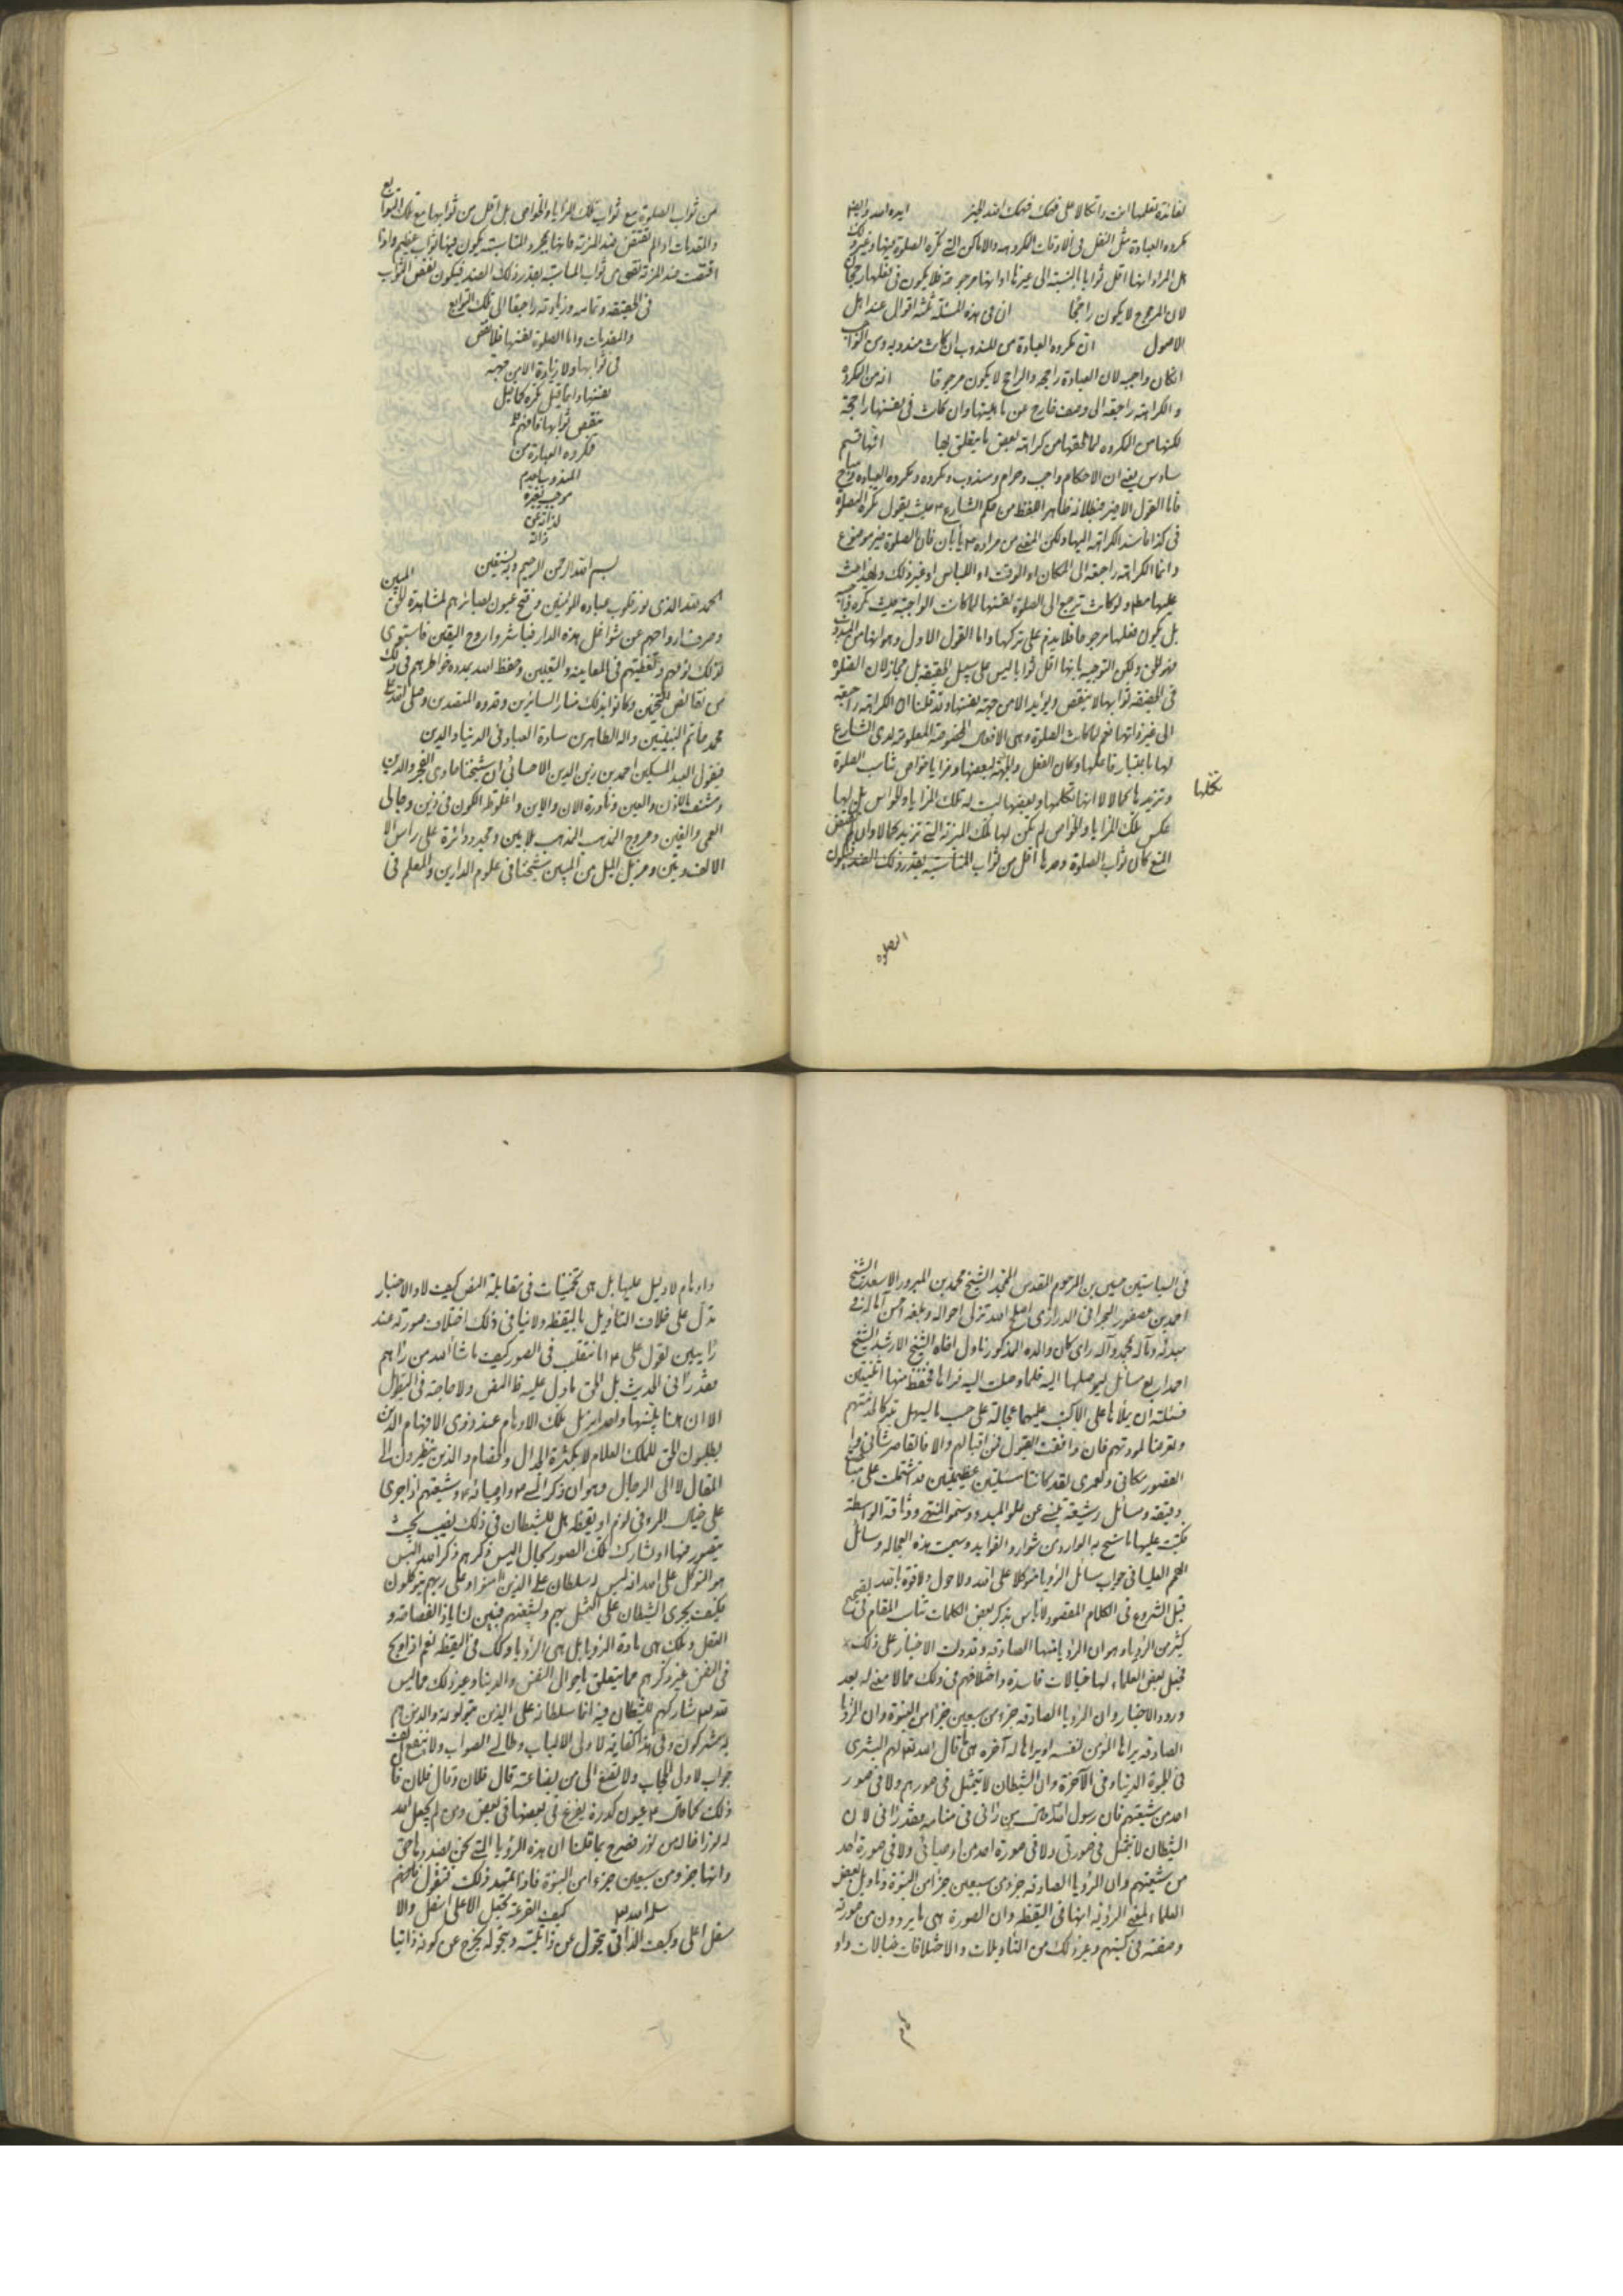 لفائدة تعلمها انت واتكالا على فهمك فهمك الله الخير ايده الله وايضا
مكروه العبادة مثل النفل في الاوقات المكروهه والاماكن التي تكره الصلوة فيها وغير ذلك
هل المراد انها اقل ثوابا بالنسبة الى غيرها او انها مرجوحة فلا يكون في فعلها رجحان
لان المرجوح لا يكون راجحا ان في هذه المسئلة ثلثة اقوال عند اهل
الاصول ان مكروه العبادة من المندوب ان كانت مندوبه ومن الواجب
ان كان واجبه لان العبادة راجحه والراجح لا يكون مرجوحا انه من المكروه
والكراهة راجعة الى وصف خارج عن ماهيتها وان كانت في نفسها راجحة
لكنها من المكروه لما لحقها من كراهة بعض ما يتعلق بها انها قسم
سادس يعني ان الاحكام واجب وحرام ومندوب ومكروه ومكروه العباده ومباح
فاما القول الاخير فبطلانه ظاهر اللفظ من حكم الشارع ع حيث يقول تكره الصلوة
في كذا فاسند الكراهة اليها ولكن المعنى من مراده ع يأبى ان فان الصلوة خير موضوع
وانما الكراهة راجعة الى المكان او الوقت او اللباس او غير ذلك ولهذا حث
عليها مطلقا ولو كانت ترجع الى الصلوة لنفسها لما كانت الواجبة حيث تكره
بل يكون فعلها مرجوحا فلا يذم على تركها واما القول الاول وهو انها من المندوب
فهو الحق ولكن التوجيه بانها اقل ثوابا ليس على سبيل الحقيقة بل مجاز لان الصلوة
في الحقيقة ثوابها لا ينقص ويزيد الا من جهة نفسها وقد قلنا ان الكراهة راجعة
الى غير ذاتها نعم لما كانت الصلوة وهي الافعال المخصوصة المعلومة لدى الشارع
لها باعتبار فاعلها ومكان الفعل والهيئة لبعضها مزايا وخواص تناسب الصلوة
وتزيدها كمالا لا انها تكملها وبعضها ليست له تلك المزايا والخواص بل لها
عكس تلك المزايا والخواص لم تكن لها تلك المزية التي تزيد كمالا وان لم تقتض
المنع كان ثواب الصلوة وحدها اقل من ثواب المناسبة بقدر ذلك الضد فيكون
تكملها
الصلوة
من ثواب الصلوة مع ثواب تلك المزايا والخواص بل اقل من ثوابها مع تلك التوابع
والمقدمات اذا لم تقتض ضد المزية فانها بمجرد المناسبة يكون فيها ثواب عظيم واذا
اقتضت ضد المزية نقص من ثواب المناسبة بقدر ذلك الضد فيكون نقص الثواب
في الحقيقة وتمامه وزيادته راجعا الى تلك التوابع
والمقدمات واما الصلوة نفسها فلا نقص
في ثوابها ولا زيادة الا من جهة
نفسها وانما قيل تكره كما قيل
تنقص ثوابها فافهم
فمكروه العبادة من
المندوب بعدم
موجب لغيره
بسم الله الرحمن الرحيم وبه نستعين
الحمد لله الذي نور قلوب عباده المؤمنين وفتح عيون بصائرهم لمشاهدة الحق المبين
وصرف ارواحهم عن شواغل هذه الدار فباشروا روح اليقين فاستوى
لذلك نومهم ويقظتهم في المعاينة والتعيين وحفظ الله بمدده خواطرهم في ذلك
من نقائص المتخيلين وكانوا بذلك منار السائرين وقدوه المقتدين وصلى الله على
محمد خاتم النبيين واله الطاهرين سادة العباد في الدنيا والدين
فيقول العبد المسكين احمد بن زين الدين الاحسائي ان شيخنا حاوي الفخر والدين
وشنف الاذن والعين ونادرة الان والاين واغلوطة الكون في زين وجالي
العمى والغين ومروج المذهب المذهب بلا مين ومجدد دائرة على راس الا
الالف ومئين ومزيل الليل من المبين شيخنا في علوم الدارين والمعلم في
في السياستين حسين بن المرحوم المقدس الممجد الشيخ محمد بن المبرور الاسعد الشيخ
احمد بن عصفور البحراني الدرازي اصلح الله تنزل احواله وبلغه احسن آماله في
مبدئه ومآله بمحمد وآله راى كان والده المذكور ناول اخاه الشيخ الارشد الشيخ
احمد اربع مسائل ليوصلها اليه فلما وصلت اليه قراها فحفظ منها اثنتين
فسئلته ان يملاها علي لاكتب عليهما عجالة على حسب ما يسهل تبركا لخدمتهم
وتعرضا لمودتهم فان وافقت القبول فمن اقبالهم والا فالقاصر شاني و
القصور مكاني ولعمري لقد كانتا مسئلتين عظيمتين قد اشتملت على مباحث
دقيقة ومسائل رشيقة تنبئ عن علو المبدء وسمو المنتهى ووثاقة الواسطة
فكتبت عليها ما سنح به الوارد من شوارد الفوايد وسميت هذه العجاله وسائل
الهمم العليا في جواب مسائل الرؤيا متوكلا على الله ولا حول ولا قوة الا بالله
قبل الشروع في الكلام المقصود لا باس بذكر بعض الكلمات تناسب المقام
كثير من الرؤيا وهو ان الرؤيا منها الصادقه وقد دلت الاخبار على ذلك
فجعل بعض العلماء لها خيالات فاسدة واختلافهم في ذلك مما لا معنى له بعد
ورود الاخبار وان الرؤيا الصادقه جزء من سبعين جزءا من النبوة وان الرؤيا
الصادقه يراها المؤمن لنفسه او يراها له آخره كما قال الله تعالى لهم البشرى
في الحيوة الدنيا وفي الآخرة وان الشيطان لا يتمثل في صورهم ولا في صور
احد من شيعتهم فان رسول الله قال من رآني في منامه فقد رآني لان
الشيطان لا يتمثل في صورتي ولا في صورة احد من اوصيائي ولا في صورة احد
من شيعتهم وان الرؤيا الصادقه جزء من سبعين جزءا من النبوة وتاويل بعض
العلماء لمعنى الرؤية انها في اليقظه وان الصورة هي ما يروون من صورته
وصفته في كتبهم وغير ذلك من التاويلات والاختلافات خيالات واو
واوهام لا دليل عليها بل هي تخمينات في مقابلة النص كيف لا والاخبار
تدل على خلاف التأويل باليقظه ولا ينافي ذلك اختلاف صورته عند
رآيين لقول علي ع انا نتقلب في الصور كيف ما شاء الله من رآهم
فقد رآني الحديث بل الحق ما دل عليه ظاهر النص ولا حاجة في التطويل
الا ان هنا والله لمزيل تلك الاوهام عند ذوي الافهام الذين
يطلبون الحق للملك العلام لا بكثرة الجدال والخصام والذين ينظرون الى
المقال لا الى الرجال وهو ان ذكر النبي ص واوصيائه ع وشيعتهم اذا جرى
على خيال المرء في نوم او يقظه هل للشيطان في ذلك نصيب بحيث
يتصور فيها او يشارك تلك الصور بحال اليس ذكرهم ذكر الله اليس
هو التوكل على الله انه ليس له سلطان على الذين آمنوا وعلى ربهم يتوكلون
فكيف يجري الشيطان على التمثل بهم وبشيعتهم فتبين لنا ياذا الفصاحة و
العقل وتلك هي مادة الرؤيا بل هي الرؤيا وكك في اليقظه نعم اذا ولج
في النفس غير ذكرهم مما يتعلق باحوال النفس والدنيا وغير ذلك مما ليس
لله تعالى شاركهم الشيطان فيه انما سلطانه على الذين يتولونه والذين هم
به مشركون وفي هذا كفاية لاولى الالباب وطالبي الصواب ولا ينفع الف
جواب لاولى الحجاب ولا تصغ الى من بضاعته قال فلان وقال فلان فان
ذلك كما قال ع عيون كدرة يفرغ بعضها في بعض ومن لم يجعل الله
له نورا فما له من نور فصرح بما قلنا ان هذه الرؤيا التي نحن بصددها حق
وانها جزء من سبعين جزءا من النبوة فاذا تمهد ذلك فنقول فافهم
سلمه الله تعالى كيف القرعة تجعل الاعلى اسفل والا
سفل اعلى وكيف الذاتي يتحول عن ذاتيته وبتحوله يخرج عن كونه ذاتيا